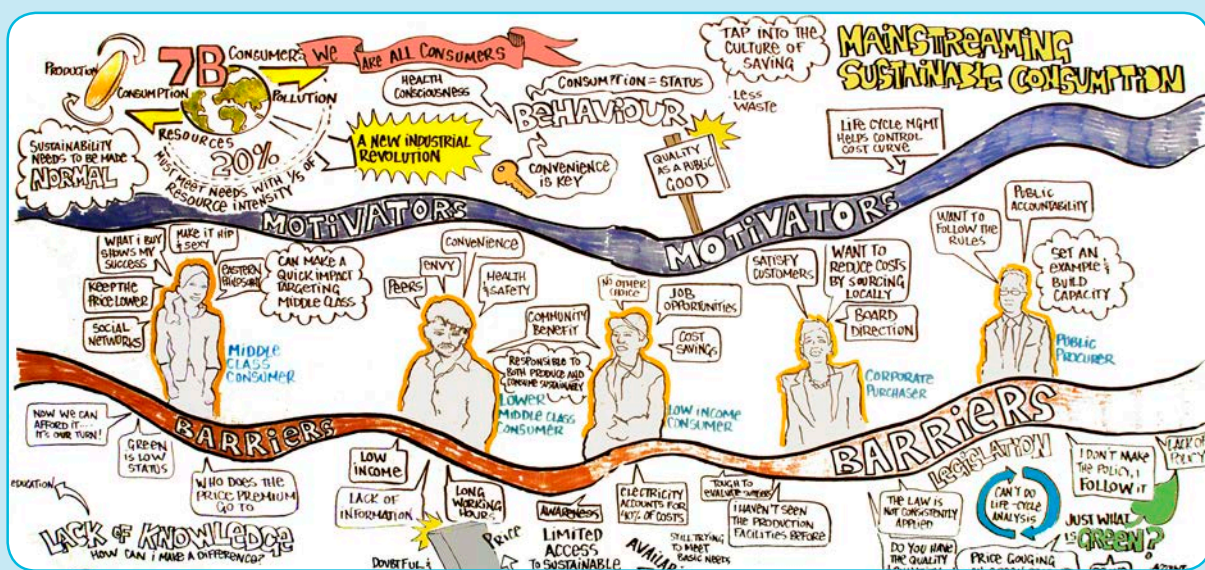 PRODUCTION
CONSUMPTION
7B
CONSUMERS
POLLUTION
RESOURCES
20%
MUST MEET NEEDS WITH 1/5 OF
RESOURCE INTENSITY
SUSTAINABILITY
NEEDS TO BE MADE
NORMAL
WE
ARE ALL CONSUMERS
A NEW INDUSTRIAL
REVOLUTION
HEALTH
CONSCIOUSNESS
CONSUMPTION = STATUS
BEHAVIOUR
CONVENIENCE
IS KEY
TAP INTO THE
CULTURE OF
SAVING
LESS
WASTE
QUALITY
AS A PUBLIC
GOOD
MAINSTREAMING
SUSTAINABLE CONSUMPTION
LIFE CYCLE MGMT
HELPS CONTROL
COST CURVE
MOTIVATORS
MOTIVATORS
WHAT I BUY
SHOWS MY
SUCCESS
MAKE IT HIP
& SEXY
KEEP THE
PRICE LOWER
EASTERN
SOCIAL
NETWORKS
CAN MAKE A
QUICK IMPACT
TARGETING
MIDDLE CLASS
MIDDLE
CLASS
CONSUMER
PEERS
ENVY
CONVENIENCE
HEALTH
& SAFETY
COMMUNITY
BENEFIT
RESPONSIBLE TO
BOTH PRODUCE AND
CONSUME SUSTAINABLY
LOWER
MIDDLE CLASS
CONSUMER
NO OTHER
CHOICE
JOB
OPPORTUNITIES
COST
SAVINGS
LOW INCOME
CONSUMER
SATISFY
CUSTOMERS
WANT TO
REDUCE COSTS
BY SOURCING
LOCALLY
BOARD
DIRECTION
CORPORATE
PURCHASER
WANT TO
FOLLOW THE
RULES
PUBLIC
ACCOUNTABILITY
SET AN
EXAMPLE &
BUILD
CAPACITY
PUBLIC
PROCURER
BARRIERS
BARRIERS
NOW WE CAN
AFFORD IT....
IT'S OUR TURN!
GREEN
IS LOW
STATUS
WHO DOES THE
PRICE PREMIUM
GO TO
EDUCATION
LACK OF KNOWLEDGE
HOW CAN I MAKE A DIFFERENCE?
LOW
INCOME
LACK OF
INFORMATION
LONG
WORKING
HOURS
DOUBTFUL
PRICE
AWARENESS
LIMITED
ACCESS
TO SUSTAINABLE
ELECTRICITY
ACCOUNTS FOR
40% OF COSTS
STILL TRYING
TO MEET
BASIC NEEDS
TOUGH TO
EVALUATE
I HAVEN'T SEEN
THE PRODUCTION
FACILITIES BEFORE
LEGISLATION
THE LAW IS
NOT CONSISTENTLY
APPLIED
DO YOU HAVE
THE QUALITY
CAN'T DO
LIFE-CYCLE
ANALYSIS
PRICE GOUGING
I DON'T MAKE
THE POLICY, I
FOLLOW IT
LACK OF
POLICY
JUST WHAT
IS GREEN?